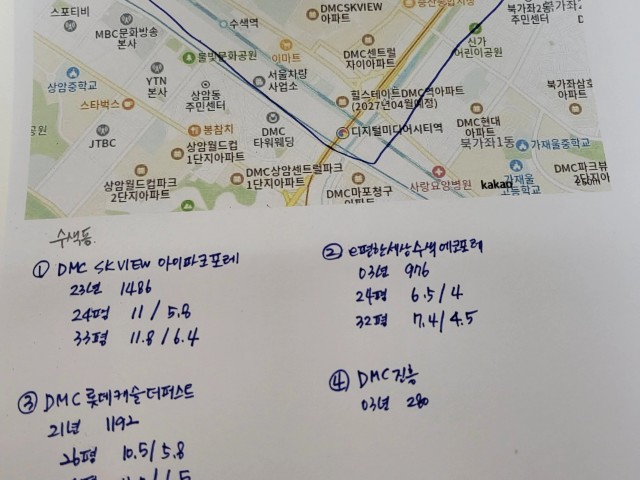 스포티비
MBC문화방송
본사
수색역
DMCSKVIEW
아파트
북가좌2동
주민센터
북가좌
아파트
물빛문화공원
이마트
DMC센트럴
자이아파트
신가
어린이공원
상암중학교
YTN
본사
상암동
주민센터
서울차량
사업소
힐스테이트DMC역아파트
(2027년04월예정)
북가좌삼호
아파트
스타벅스
JTBC
봉참치
DMC
타워웨딩
디지털미디어시티역
DMC현대
아파트
북가좌1동
가재울중학교
공원
상암월드컵파크
1단지아파트
상암월드컵파크
2단지아파트
DMC상암센트럴파크
1단지아파트
DMC마포청구
아파트
사랑요양병원
kakao
가재울
고등학교
DMC파크뷰
2단지아
250m
수색동
① DMC SKVIEW 아이파크포레
23년 1486
24평 11 / 5.8
33평 11.8 / 6.4
② e편한세상수색에코포레
03년 976
24평 6.5 / 4
32평 7.4 / 4.5
③ DMC 롯데캐슬더퍼스트
21년 1192
26평 10.5 / 5.8
④ DMC진흥
03년 280